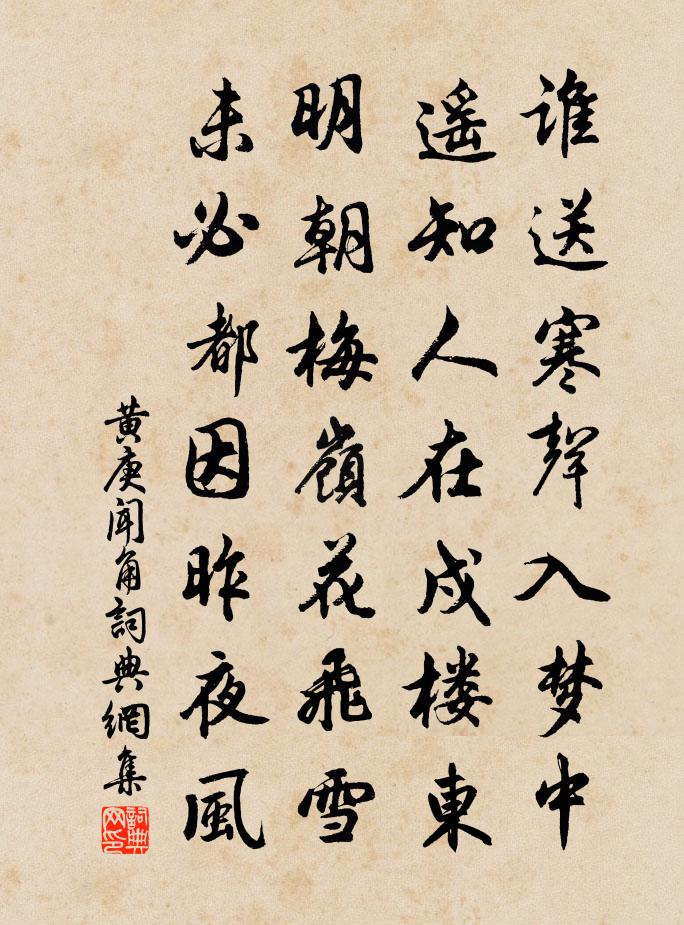 谁送寒聲入梦中
遥知人在戍楼東
明朝梅嶺花飛雪
未必都因昨夜風
黄庚闻角詞典網集
詞典网印